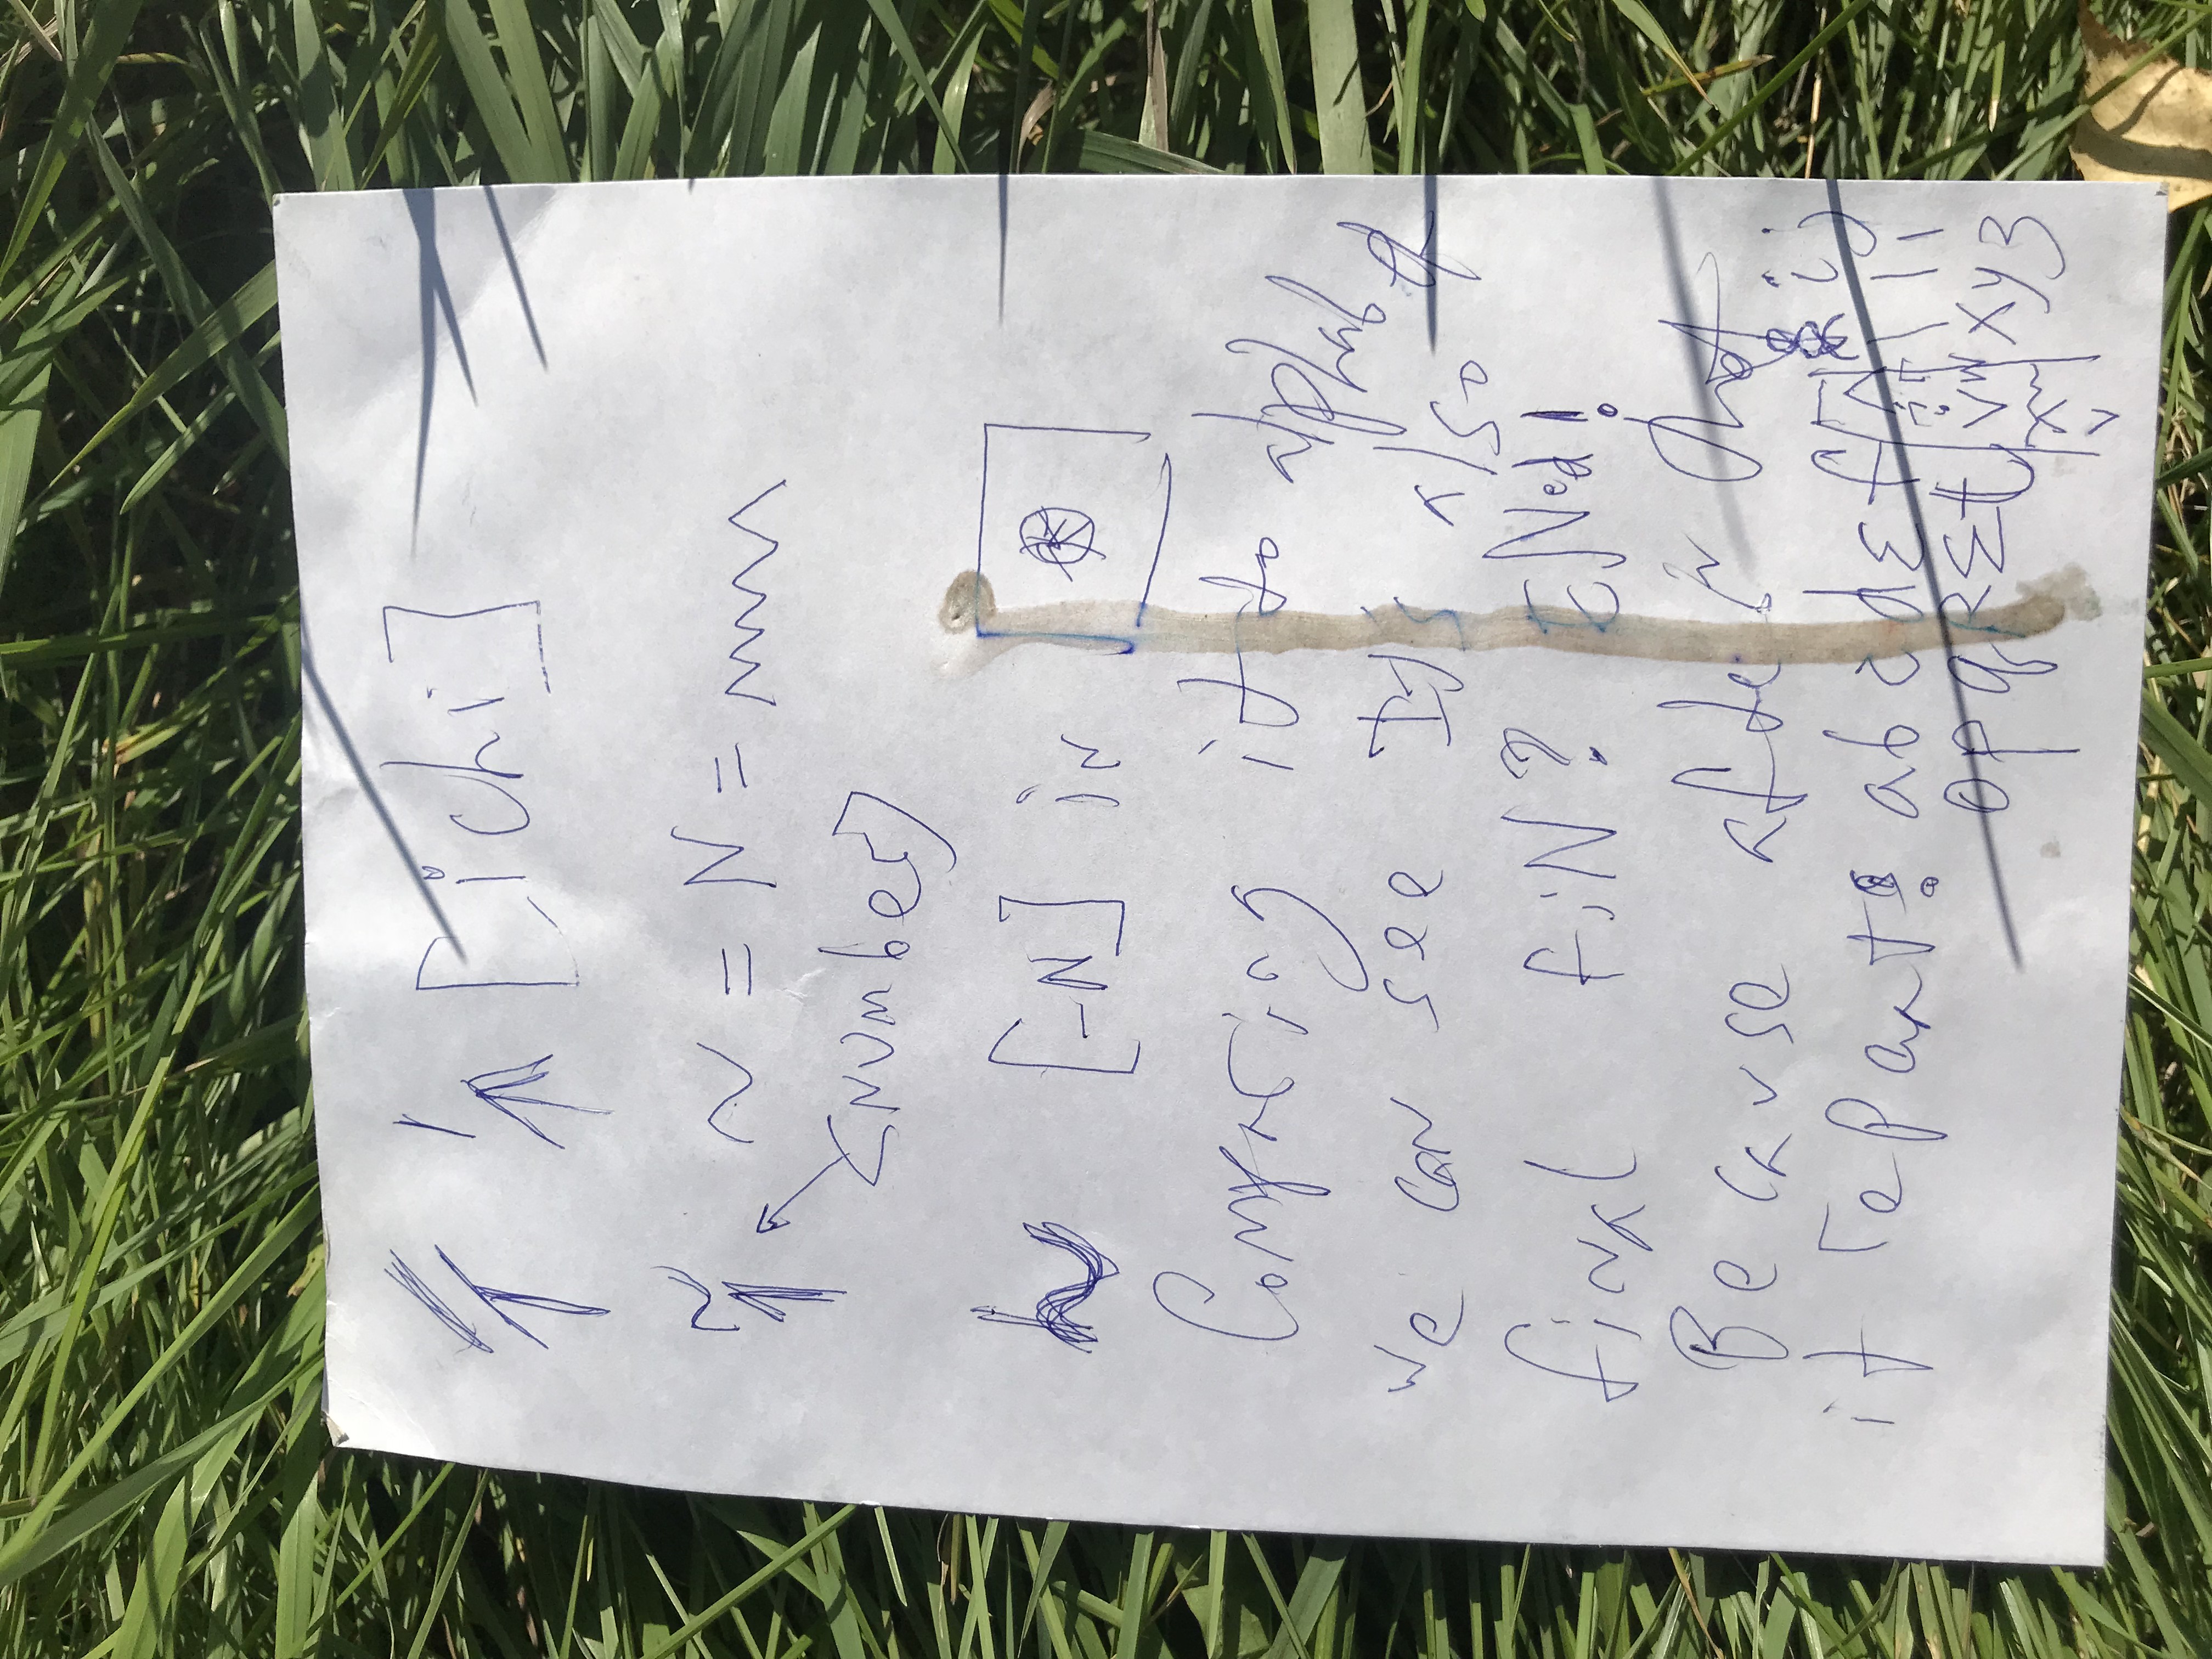 [ichi]
~ = N = mmm
<number>
[-N] in
Comparing it to alphabet
we can see It's also
final fiN? ENed!
Because after that
it repeart! abcdΣf ij
opqRΣt vw xyz
v